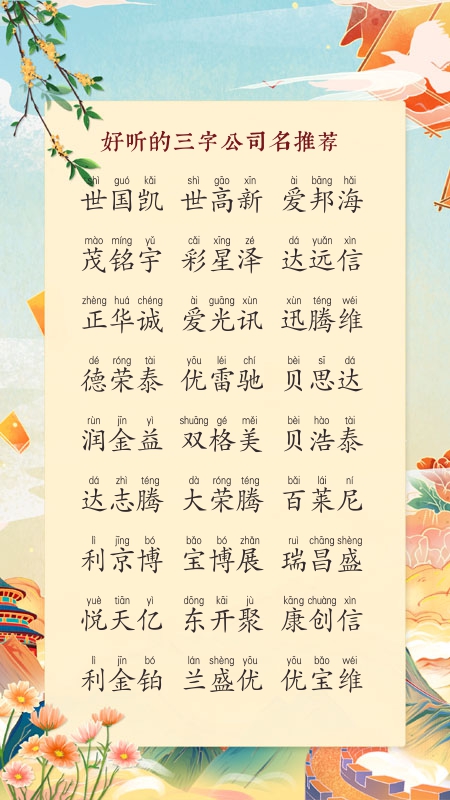 好听的三字公司名推荐
shì guó kǎi shì gāo xīn ài bāng hǎi
世国凯 世高新 爱邦海
mào míng yǔ cǎi xīng zé dá yuǎn xìn
茂铭宇 彩星泽 达远信
zhèng huá chéng ài guāng xùn xùn téng wéi
正华诚 爱光讯 迅腾维
dé róng tài yōu léi chí bèi sī dá
德荣泰 优雷驰 贝思达
rùn jīn yì shuāng gé měi bèi hào tài
润金益 双格美 贝浩泰
dá zhì téng dà róng téng bǎi lái ní
达志腾 大荣腾 百莱尼
lì jīng bó bǎo bó zhǎn ruì chāng shèng
利京博 宝博展 瑞昌盛
yuè tiān yì dōng kāi jù kāng chuàng xìn
悦天亿 东开聚 康创信
lì jīn bó lán shèng yōu yōu bǎo wéi
利金铂 兰盛优 优宝维